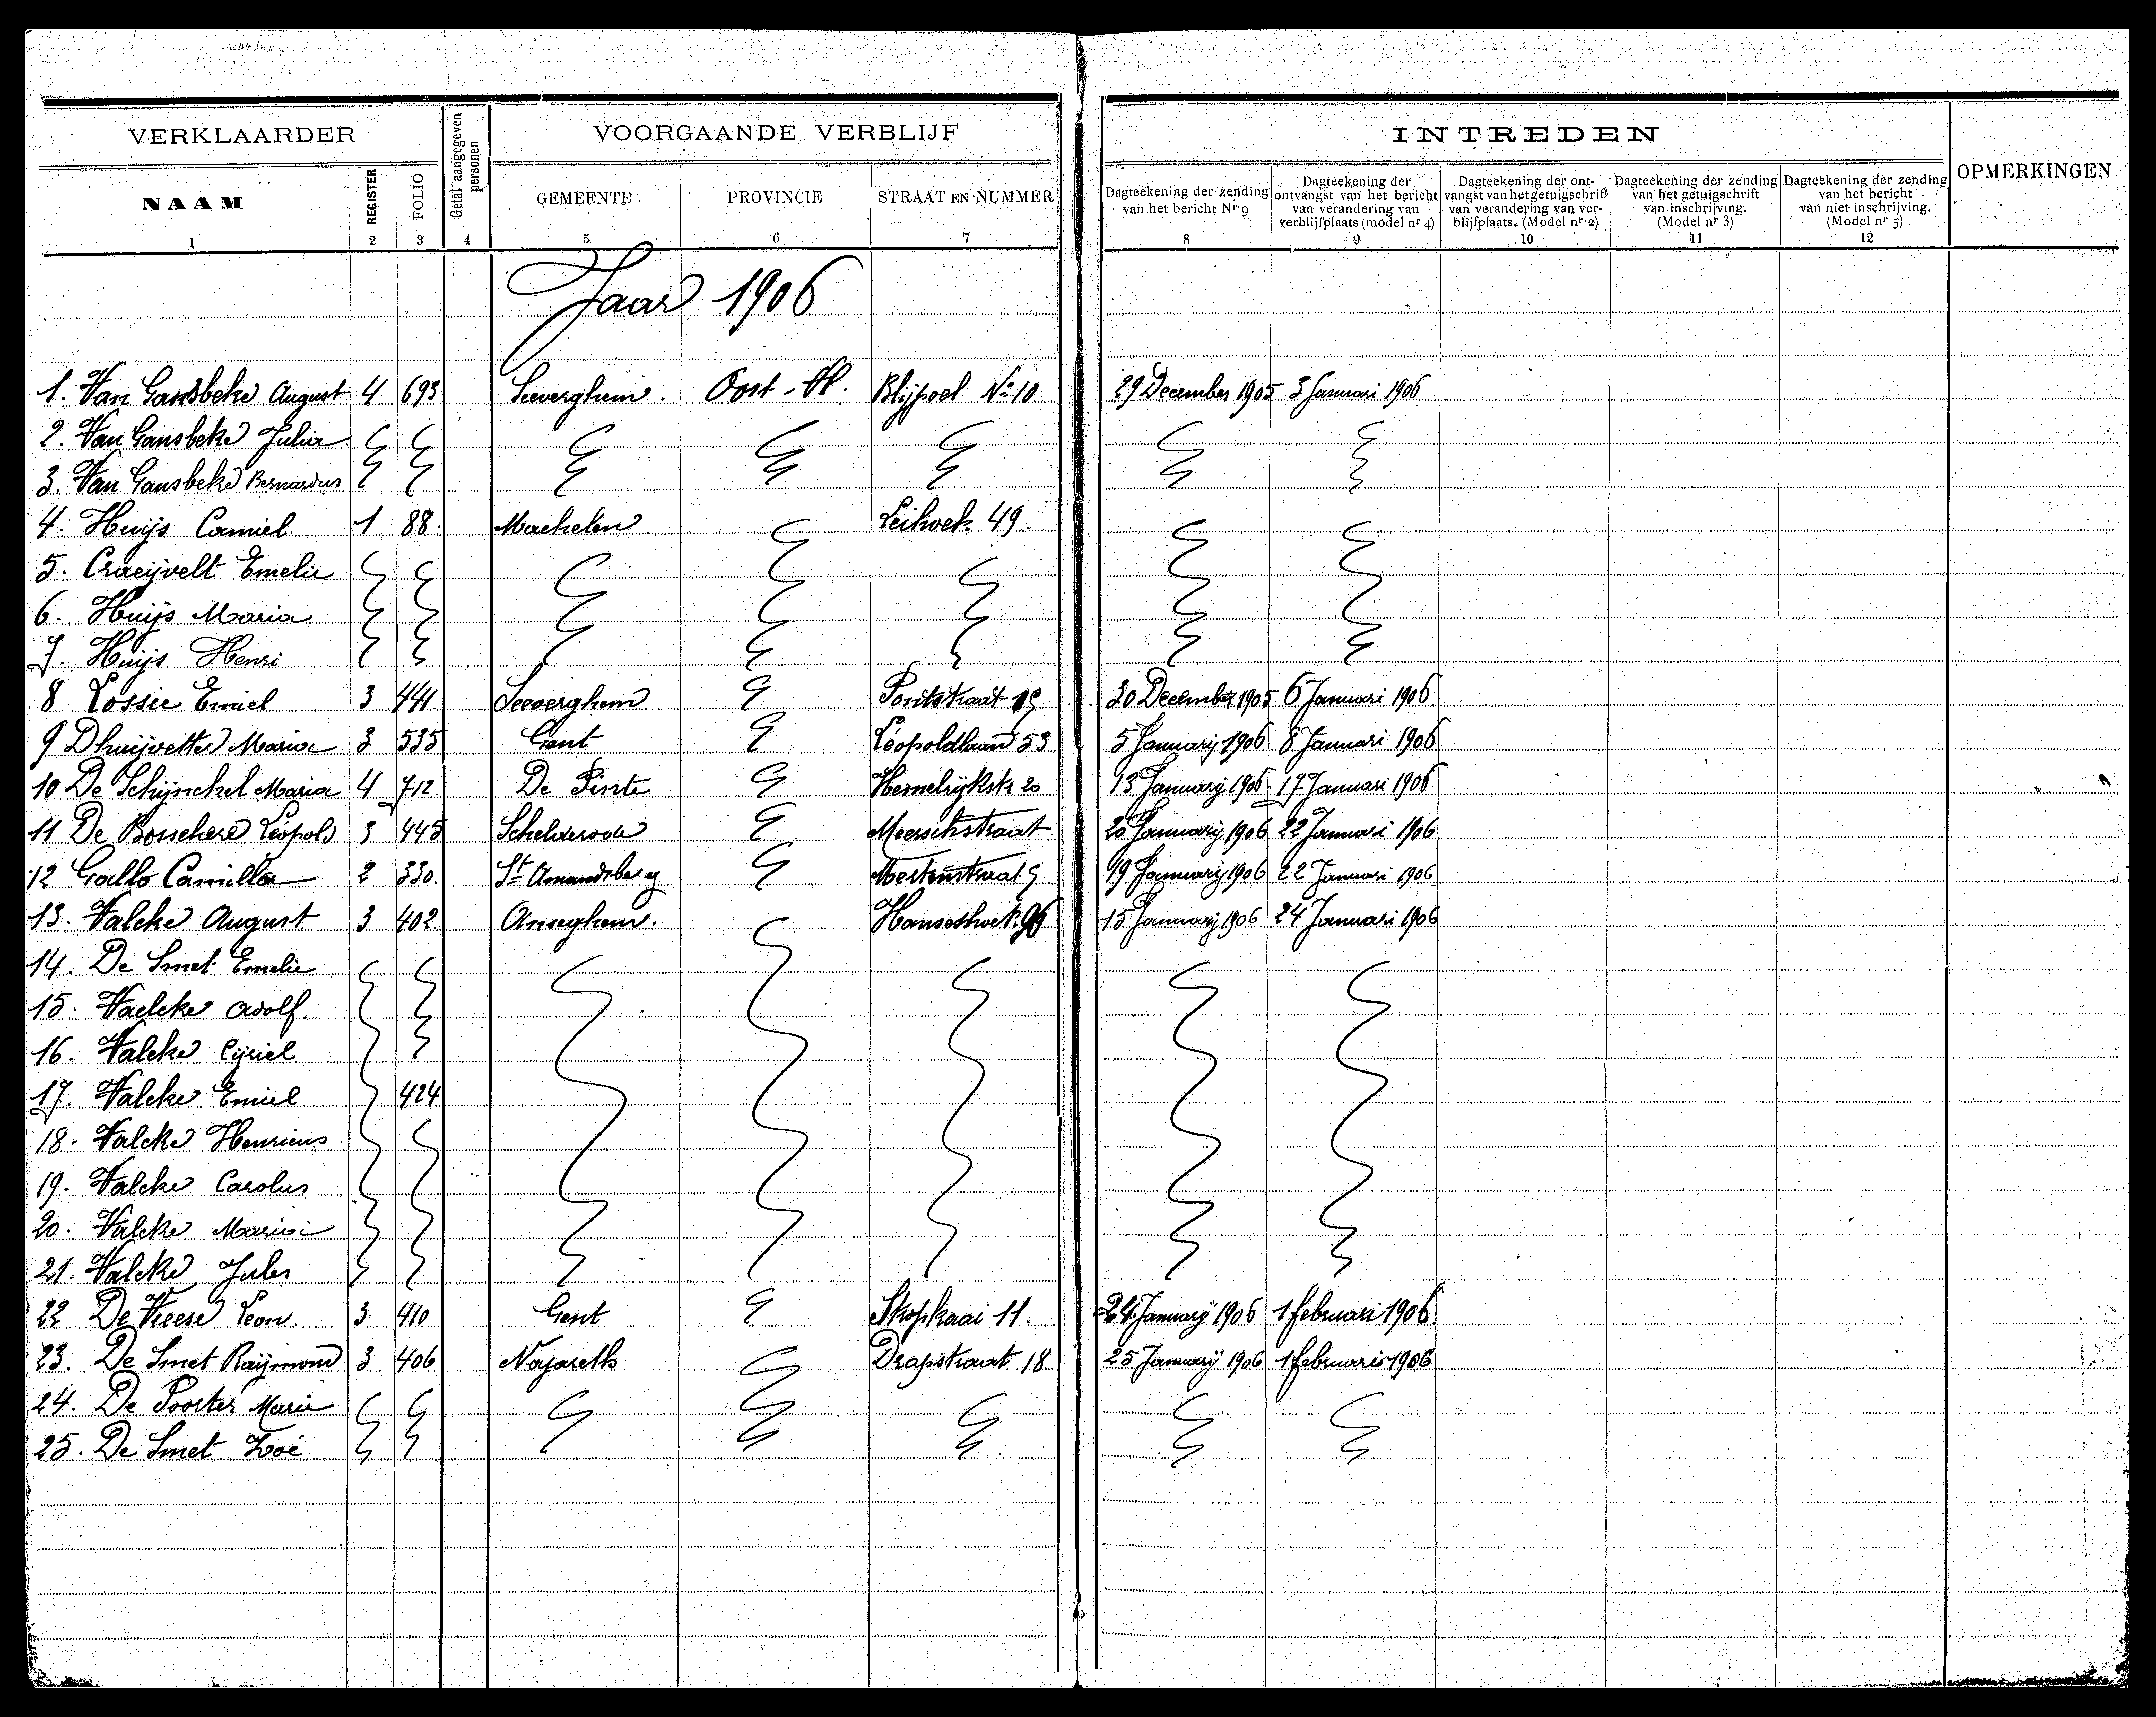 VERKLAARDER
Getal aangegeven personen
VOORGAANDE VERBLIJF
INTREDEN
OPMERKINGEN
NAAM REGISTER FOLIO GEMEENTE PROVINCIE STRAAT EN NUMMER
Dagteekening der zending van het bericht Nr 9
Dagteekening der ontvangst van het bericht van verandering van verblijfplaats (model nr 4)
Dagteekening der ontvangst van het getuigschrift van verandering van verblijfplaats. (Model nr 2)
Dagteekening der zending van het getuigschrift van inschrijving. (Model nr 3)
Dagteekening der zending van het bericht van niet inschrijving. (Model nr 5)
1 2 3 4 5 6 7 8 9 10 11 12
Jaar 1906
1. Van Gansbeke August 4 693 Seeverghem. Oost-Vl. Blijpoel No 10 29 December 1905 3 Januari 1906
2. Van Gansbeke Julia
3. Van Gansbeke Bernardus
4. Huijs Camiel 1 88. Machelen Leihoek 49.
5. Craeijvelt Emelie
6. Huijs Maria
7. Huijs Henri
8 Lossie Emiel 3 441. Seeverghem 30 December 1905 6 Januari 1906.
9 Dhuijvetter Maria 3 535 Gent Léopoldlaan 53 5 Januarij 1906 8 Januari 1906
10 De Schijnckel Maria 4 712. De Pinte Hemelrijkstr 20 13 Januarij 1906 17 Januari 1906
11 De Bosschere Léopold 3 445 Schelderode Meerschstraat 20 Januarij 1906 22 Januari 1906
12 Gallo Camilla 2 330. St Amandsberg 19 Januarij 1906 22 Januari 1906.
13. Valcke August 3 402. Anseghem. 15 Januarij 1906 24 Januari 1906
14. De Smet Emelie
15. Vaelcke Adolf.
16. Valcke Cyriel
17. Valcke Emiel 424
18. Valcke Henricus
19. Valcke Carolus
20. Valcke Maria
21. Valcke Jules
22 De Vreese Leon. 3 410 Gent Stropkaai 11. 24 Januarij 1906 1 februari 1906
23. De Smet Raijmond 3 406 Nazareth Drapstraat 18 25 Januarij 1906 1 februari 1906
24. De Poorter Marie
25. De Smet Zoé